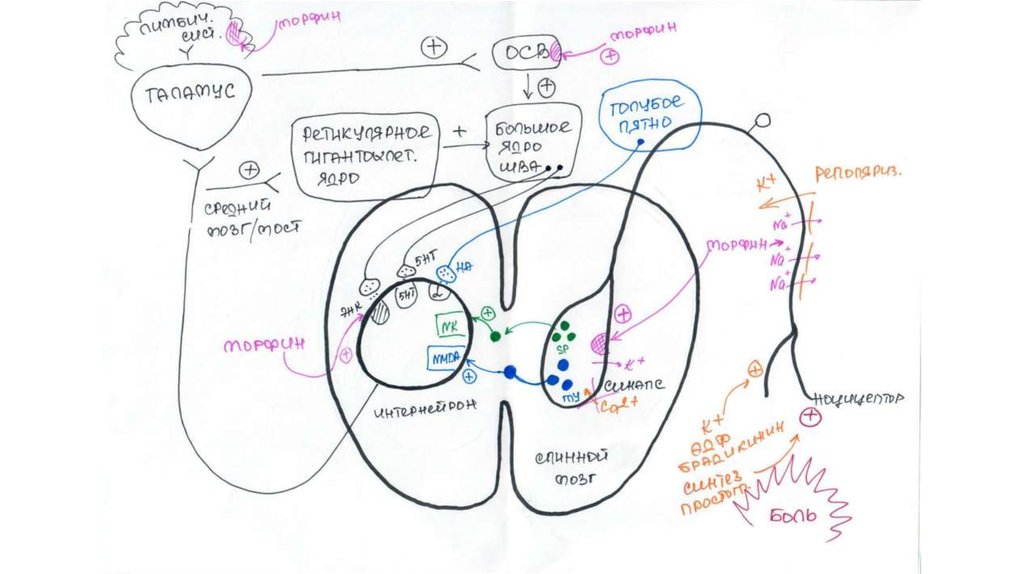 ЛИМБИЧ.
СИСТ.
МОРФИН
ТАЛАМУС
+
ОСВ
МОРФИН
+
+
РЕТИКУЛЯРНОЕ
ГИГАНТОКЛЕТ.
ЯДРО
+
БОЛЬШОЕ
ЯДРО
ШВА
ГОЛУБОЕ
ПЯТНО
+
СРЕДНИЙ
МОЗГ/МОСТ
K+
РЕПОЛЯРИЗ.
Na+
Na+
Na+
МОРФИН
5НТ
НА
ЭНК
5НТ
α
МОРФИН
+
NK
+
NMDA
+
SP
ГЛУ
+
K+
Ca2+
СИНАПС
ИНТЕРНЕЙРОН
СПИННОЙ
МОЗГ
+
НОЦИЦЕПТОР
+
K+
АДФ
БРАДИКИНИН
СИНТЕЗ
ПРОСТОГЛ.
БОЛЬ